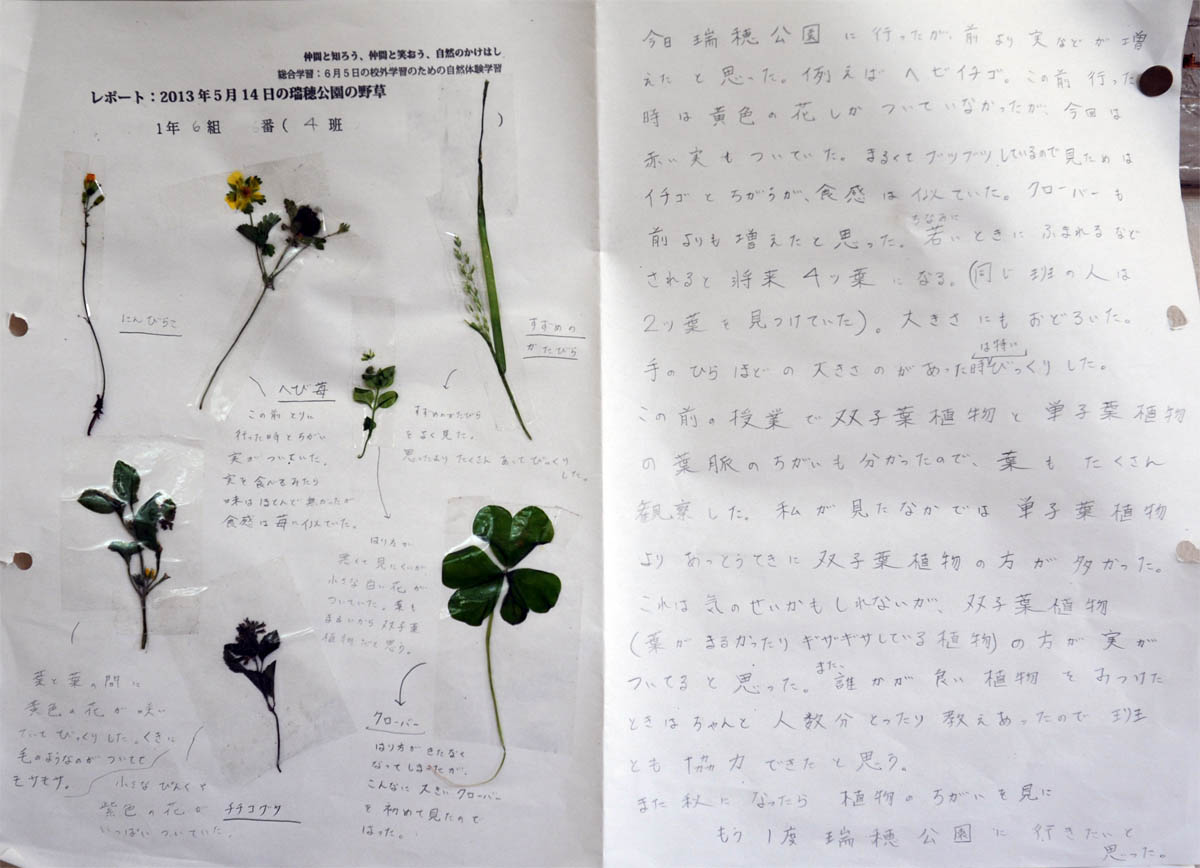 仲間と知ろう、仲間と笑おう、自然のかけはし
総合学習：6月5日の校外学習のための自然体験学習
レポート：2013年5月14日の瑞穂公園の野草
1年 6組 番( 4班 )
にんびらこ
へび苺
この前とりに
行った時とちがい
実がついていた。
実を食べてみたり
味はほとんど無かったが
食感は苺に似ていた。
すずめの
かたびら
すずめのかたびら
をよく見た。
思ったよりたくさんあってびっくり
した。
はり方が
悪くて見にくいが
小さな白い花が
ついていた。葉も
まるいから双子葉
植物だと思う。
葉と葉の間に
黄色の花が咲い
ていてびっくりした。くきに
毛のようなのがついてて
モサモサ。
小さなぴんくや
紫色の花が
いっぱいついていた。
チチコグサ
クローバー
はり方がきたなく
なってしまったが、
こんなに大きいクローバー
を初めて見たので
はった。
今日瑞穂公園に行ったが、前より実などが増
えたと思った。例えばヘビイチゴ。この前行った
時は黄色の花しかついていなかったが、今回は
赤い実もついていた。まるくてブツブツしているので見ためは
イチゴとちがうが、食感は似ていた。クローバーも
前よりも増えたと思った。ちなみに若いときにふまれるなど
されると将来4ッ葉になる。(同じ班の人は
2ッ葉を見つけていた)。大きさにもおどろいた。
手のひらほどの大きさのがあった時は特にびっくりした。
この前の授業で双子葉植物と単子葉植物
の葉脈のちがいも分かったので、葉もたくさん
観察した。私が見たなかでは単子葉植物
よりあっとうてきに双子葉植物の方が多かった。
これは気のせいかもしれないが、双子葉植物
(葉がまるかったりギザギザしている植物)の方が実が
ついてると思った。また、誰かが良い植物をみつけた
ときはちゃんと人数分とったり教えあったので班
とも協力できたと思う。
また秋になったら植物のちがいを見に
もう1度瑞穂公園に行きたいと
思った。